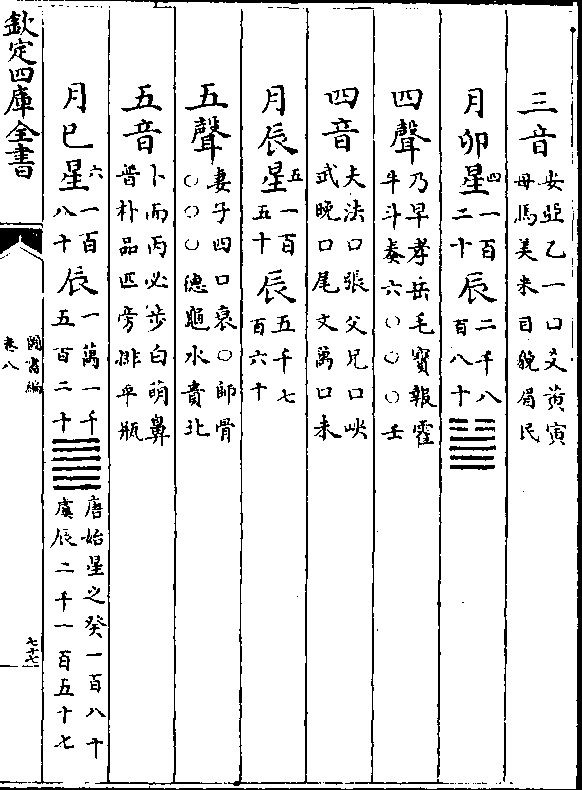 三音安亞乙一口爻黄寅
母馬美米目貌眉民
月卯星四一百二十辰二千八百八十䷡
四聲乃早孝岳毛寳報霍
牛斗奏六○○○壬
四音夫法口張父兄口峽
武晚口尾文萬口未
月辰星五一百五十辰五千七百六十
五聲妻子四口衰○帥骨
○○○德龜水貴北
五音卜兩丙必步白萌鼻
普朴品匹旁排平瓶
月巳星六一百八十辰一萬一千五百二十䷀唐始星之癸一百八十
虞辰二千一百五十七
欽定四庫全書
圖書編
卷八
七十七